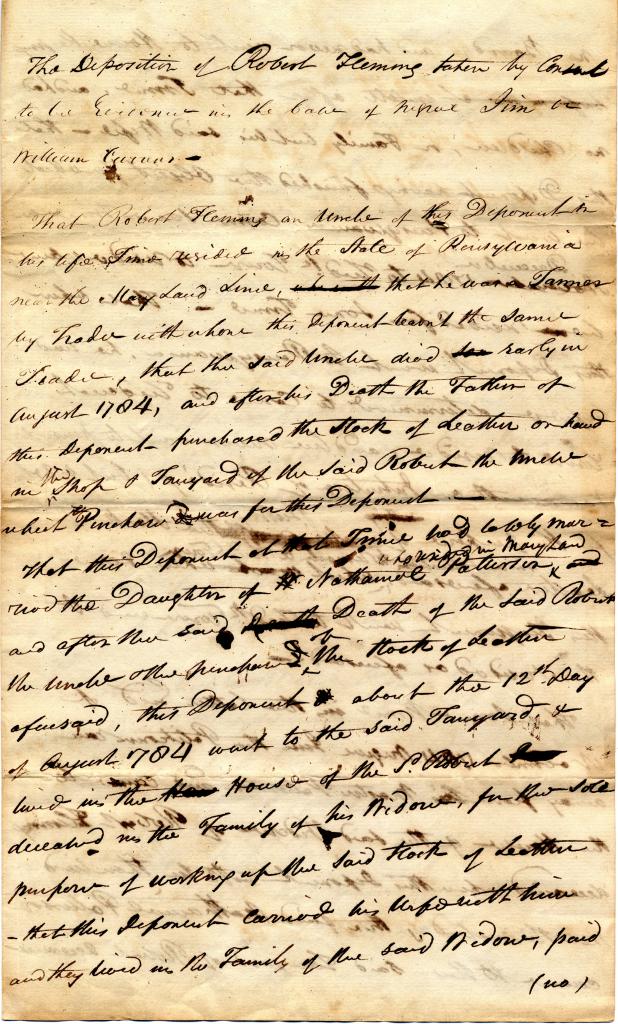 The Deposition of Robert Fleming taken by Consent
to be Evidence in the Case of negroe Jim or
William
That Robert Fleming an Uncle of this Deponent in
his life Time resided in the State of Pensylvania
near the Mary Land Line, that he was a Tanner
by Trade with whone this deponent learn't the same
Trade, that the said Uncle died Early in
August 1784, and after his Death the Father of
this deponent purchased the Stock of Leather on hand
in the Shop & Tanyard of the said Robert the Uncle
which Purchase was for this Deponent —
That this Deponent at that Time had lately mar=
ried the Daughter of Nathaniel Patterson who resided in Maryland
and after the said Death of the said Robert
the Uncle & the purchase of the Stock of Leather
aforesaid, this Deponent about the 12th Day
of August 1784 went to the said Tanyard &
lived in the House of the sd. Robert
deceased in the Family of his Widow, for the sole
purpose of working up the said Stock of Leather
- that this deponent carried his Wife with him
and they lived in the Family of the said Widow, paid
(no)